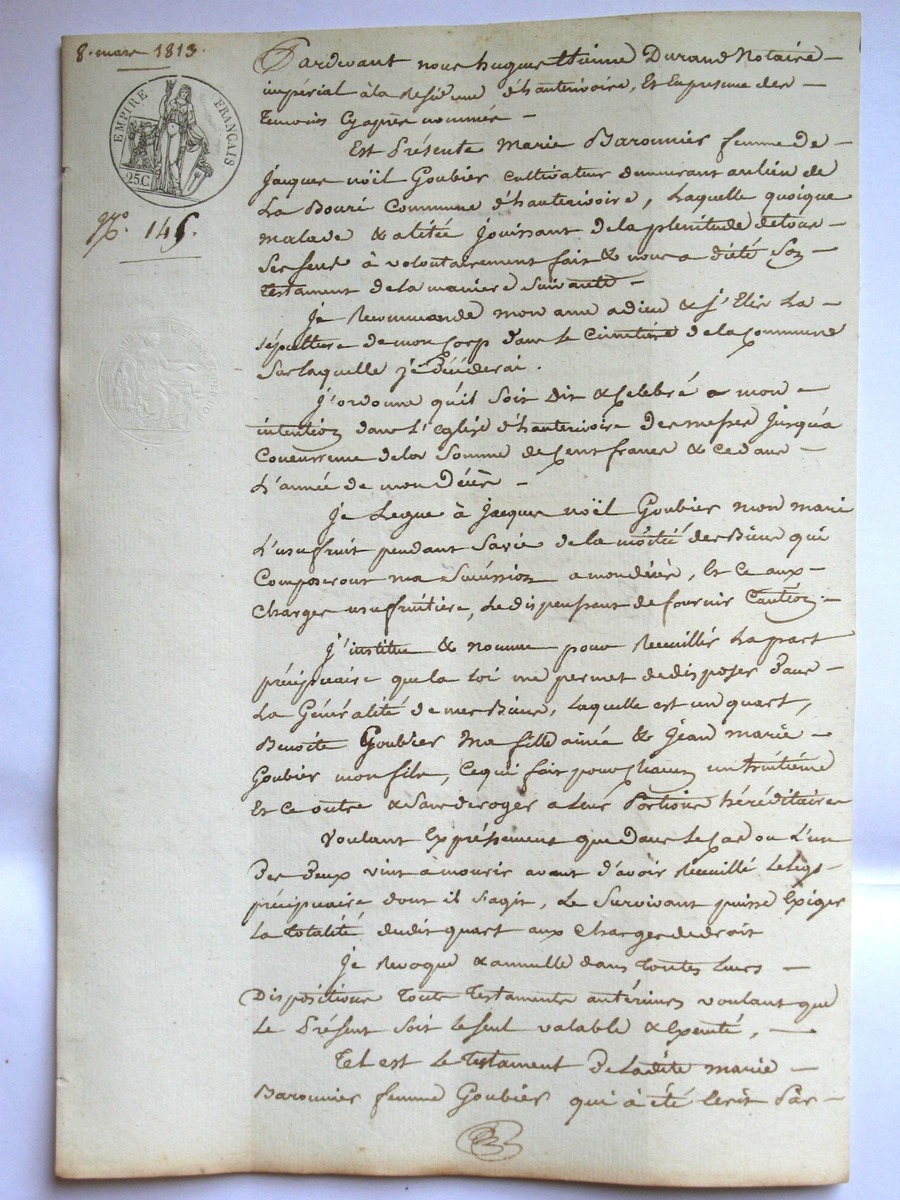 8. mars 1813.
EMPIRE FRANÇAIS
25C.
N.º 145.
Pardevant nous hugues Etienne Durand Notaire
impérial à la Residence d'hauterivoire, Et en presence des
temoins Cyaprès nommés
Est Présente Marie Baronnier femme de
Jacques noël Goubier Cultivateur demeurant au lieu de
La Commune d'hauterivoire, Laquelle quoique
malade & alitée jouissant de la plenitude de tous
Ses sens à volontairement fait & nous a dicté Son
testament de la maniere Suivante
Je Recommande mon ame a dieu & j'Elis La
sépulture de mon Corp dans le Cimetiére de la Commune
Sur laquelle je décéderai.
J'ordonne qu'il soit Dit & Celebré a mon
intention dans L'eglise d'hauterivoire Des messes jusqu'a
Concurrence de la Somme de Cent francs & ce dans
L'année de mon Décès
Je Legue à Jacques noël Goubier mon mari
L'usufruit pendant Sa vie de la moitié des Biens qui
Composeront ma Succession a mon décès, Et ce aux
Charges usufruitiere, Le dispensant de fournir Caution.
J'institue & nomme pour Recueillir La part
précipuaire que la Loi me permet de disposer Dans
La Généralité de mes Biens, Laquelle est un quart,
Benoîte Goubier Ma fille ainée & Jean marie
Goubier mon fils, Ce qui fait pour Chacun un huitiéme
Et ce outre & Sans deroger a Leur Portions héréditaires
Voulant Expréssement que dans le Cas ou L'un
Des Deux vint à mourir avant d'avoir Recueillé Le legs
précipuaire dont il s'agit, Le Survivant puisse Exiger
La totalité dudit quart aux Charges de droit
Je Revoque & annulle dans toutes Leurs
Dispositions toute testaments antérieurs voulant que
Le Présent soit le seul valable & Executé,
Tel est Le testament De Ladite marie
Baronnier femme Goubier qui à été Ecrit Par